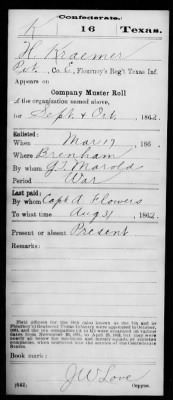 Confederate.
K 16 Texas.
H. Kraemer
Pvt., Co. E, Flournoy's Reg't Texas Inf.
Appears on
Company Muster Roll
of the organization named above,
for Sept & Oct, 1862.
Enlisted:
When Mar 17, 186 .
Where Brenham
By whom J.T. Marold
Period War
Last paid:
By whom Capt A Flowers
To what time Aug 31, 1862.
Present or absent Present
Remarks:
(642) J W Love
Copyist.